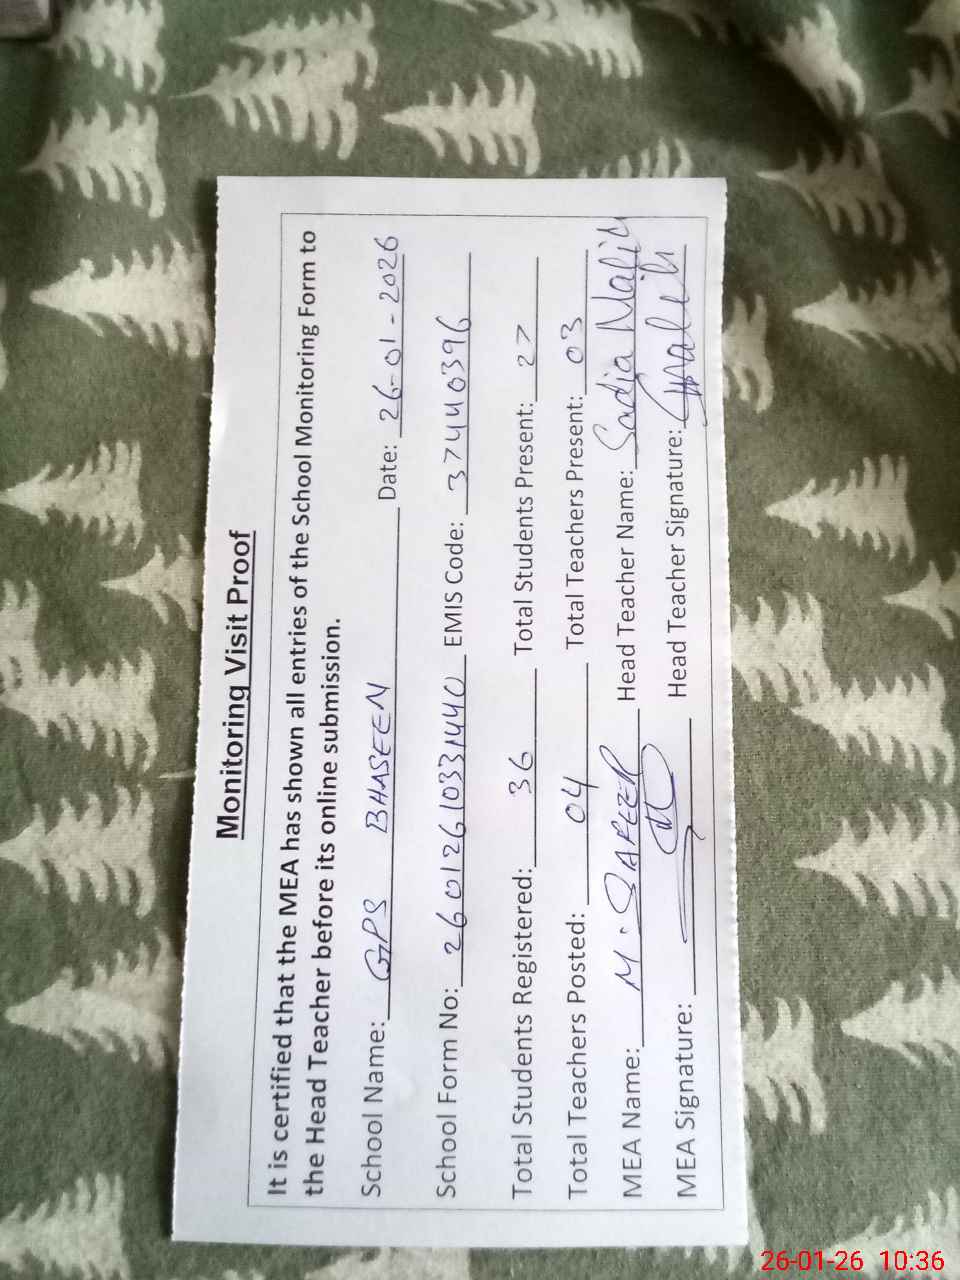 Monitoring Visit Proof
It is certified that the MEA has shown all entries of the School Monitoring Form to
the Head Teacher before its online submission.
School Name: GPS BHASEEN Date: 26-01-2026
School Form No: 26012610331440 EMIS Code: 37440396
Total Students Registered: 36 Total Students Present: 27
Total Teachers Posted: 04 Total Teachers Present: 03
MEA Name: M. SAFEER Head Teacher Name: Sadia Malik
MEA Signature: Head Teacher Signature:
26-01-26 10:36